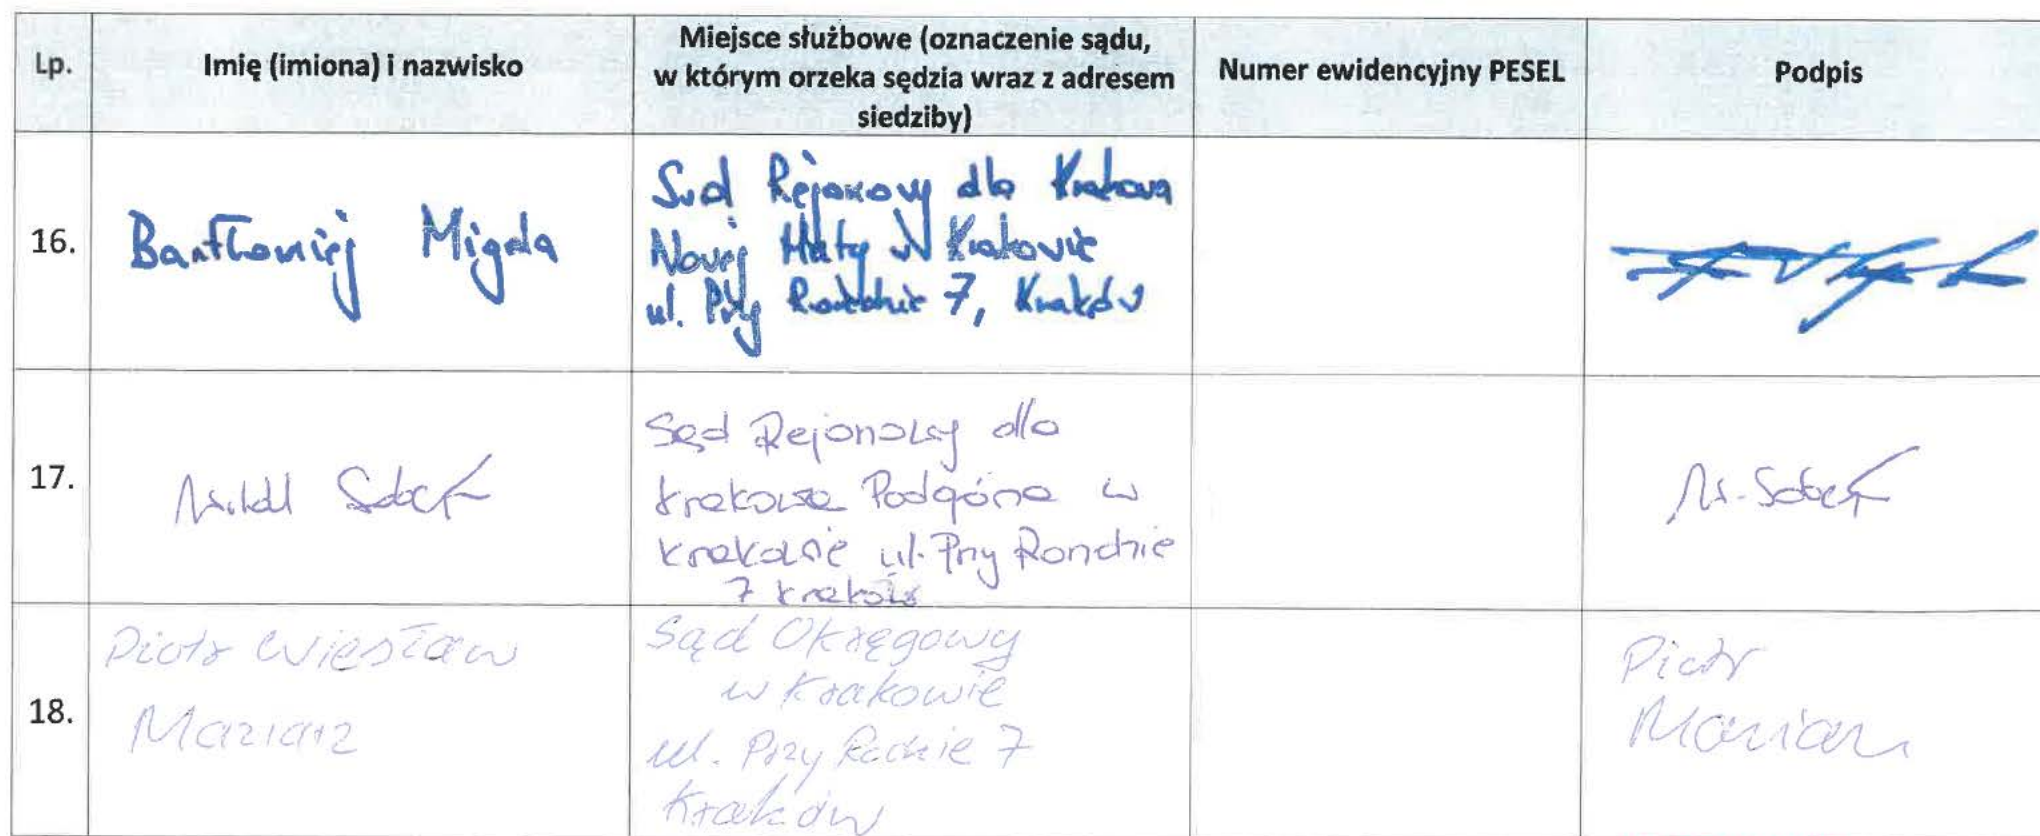 Lp.
Imię (imiona) i nazwisko
Miejsce służbowe (oznaczenie sądu,
w którym orzeka sędzia wraz z adresem
siedziby)
Numer ewidencyjny PESEL
Podpis
16.
Bartłomiej Migda
Sąd Rejonowy dla Krakowa
Nowej Huty w Krakowie
ul. Przy Rondzie 7, Kraków
17.
Michał Sobczak
Sąd Rejonowy dla
Krakowa Podgórza w
Krakowie ul. Przy Rondzie
7 Kraków
M. Sobczak
18.
Piotr Wiesław
Maziarz
Sąd Okręgowy
w Krakowie
ul. Przy Rondzie 7
Kraków
Piotr
Maziarz